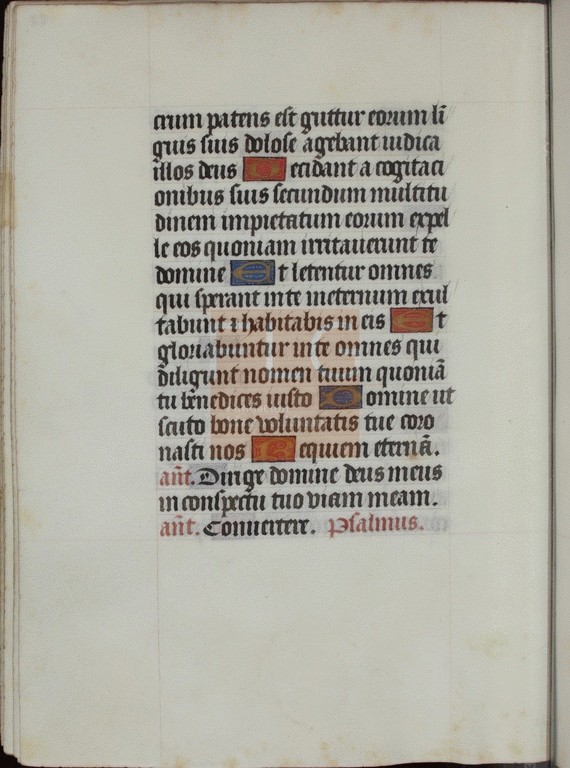 crum patens est guttur eorum li̅
guis suis dolose agebant iudica
illos deus D ecidant a cogitaci
onibus suis secundum multitu
dinem impietatum eorum expel
le eos quoniam irritauerunt te
domine E t letentur omnes
qui sperant in te in eternum exul
tabunt ⁊ habitabis in eis E t
gloriabuntur in te omnes qui
diligunt nomen tuum quonia̅
tu bn̅edices iusto D omine ut
scuto bone voluntatis tue coro
nasti nos R equiem eterna̅.
an̅t. Dirige domine deus meus
in conspectu tuo viam meam.
an̅t. Conuertere. Psalmus.